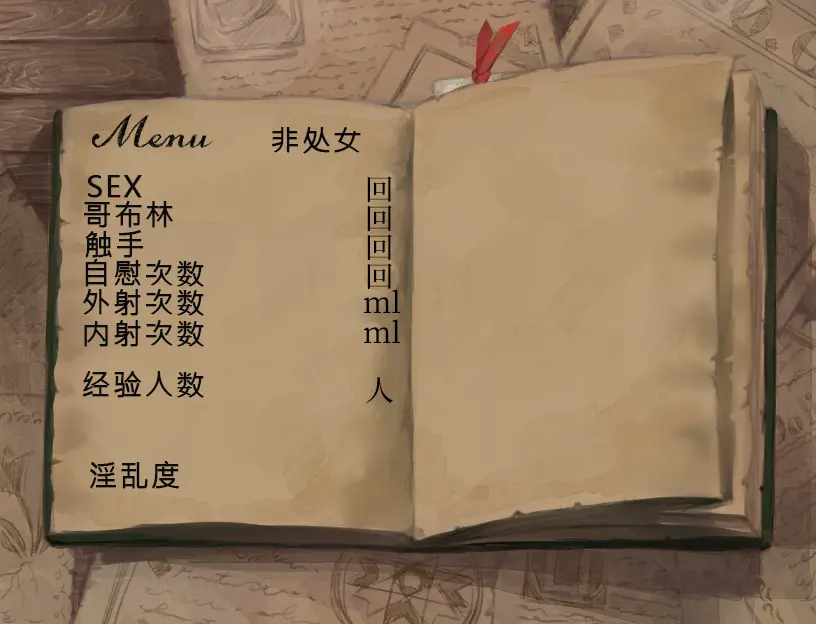 Menu 非处女
SEX 回
哥布林 回
触手 回
自慰次数 回
外射次数 ml
内射次数 ml
经验人数 人
淫乱度